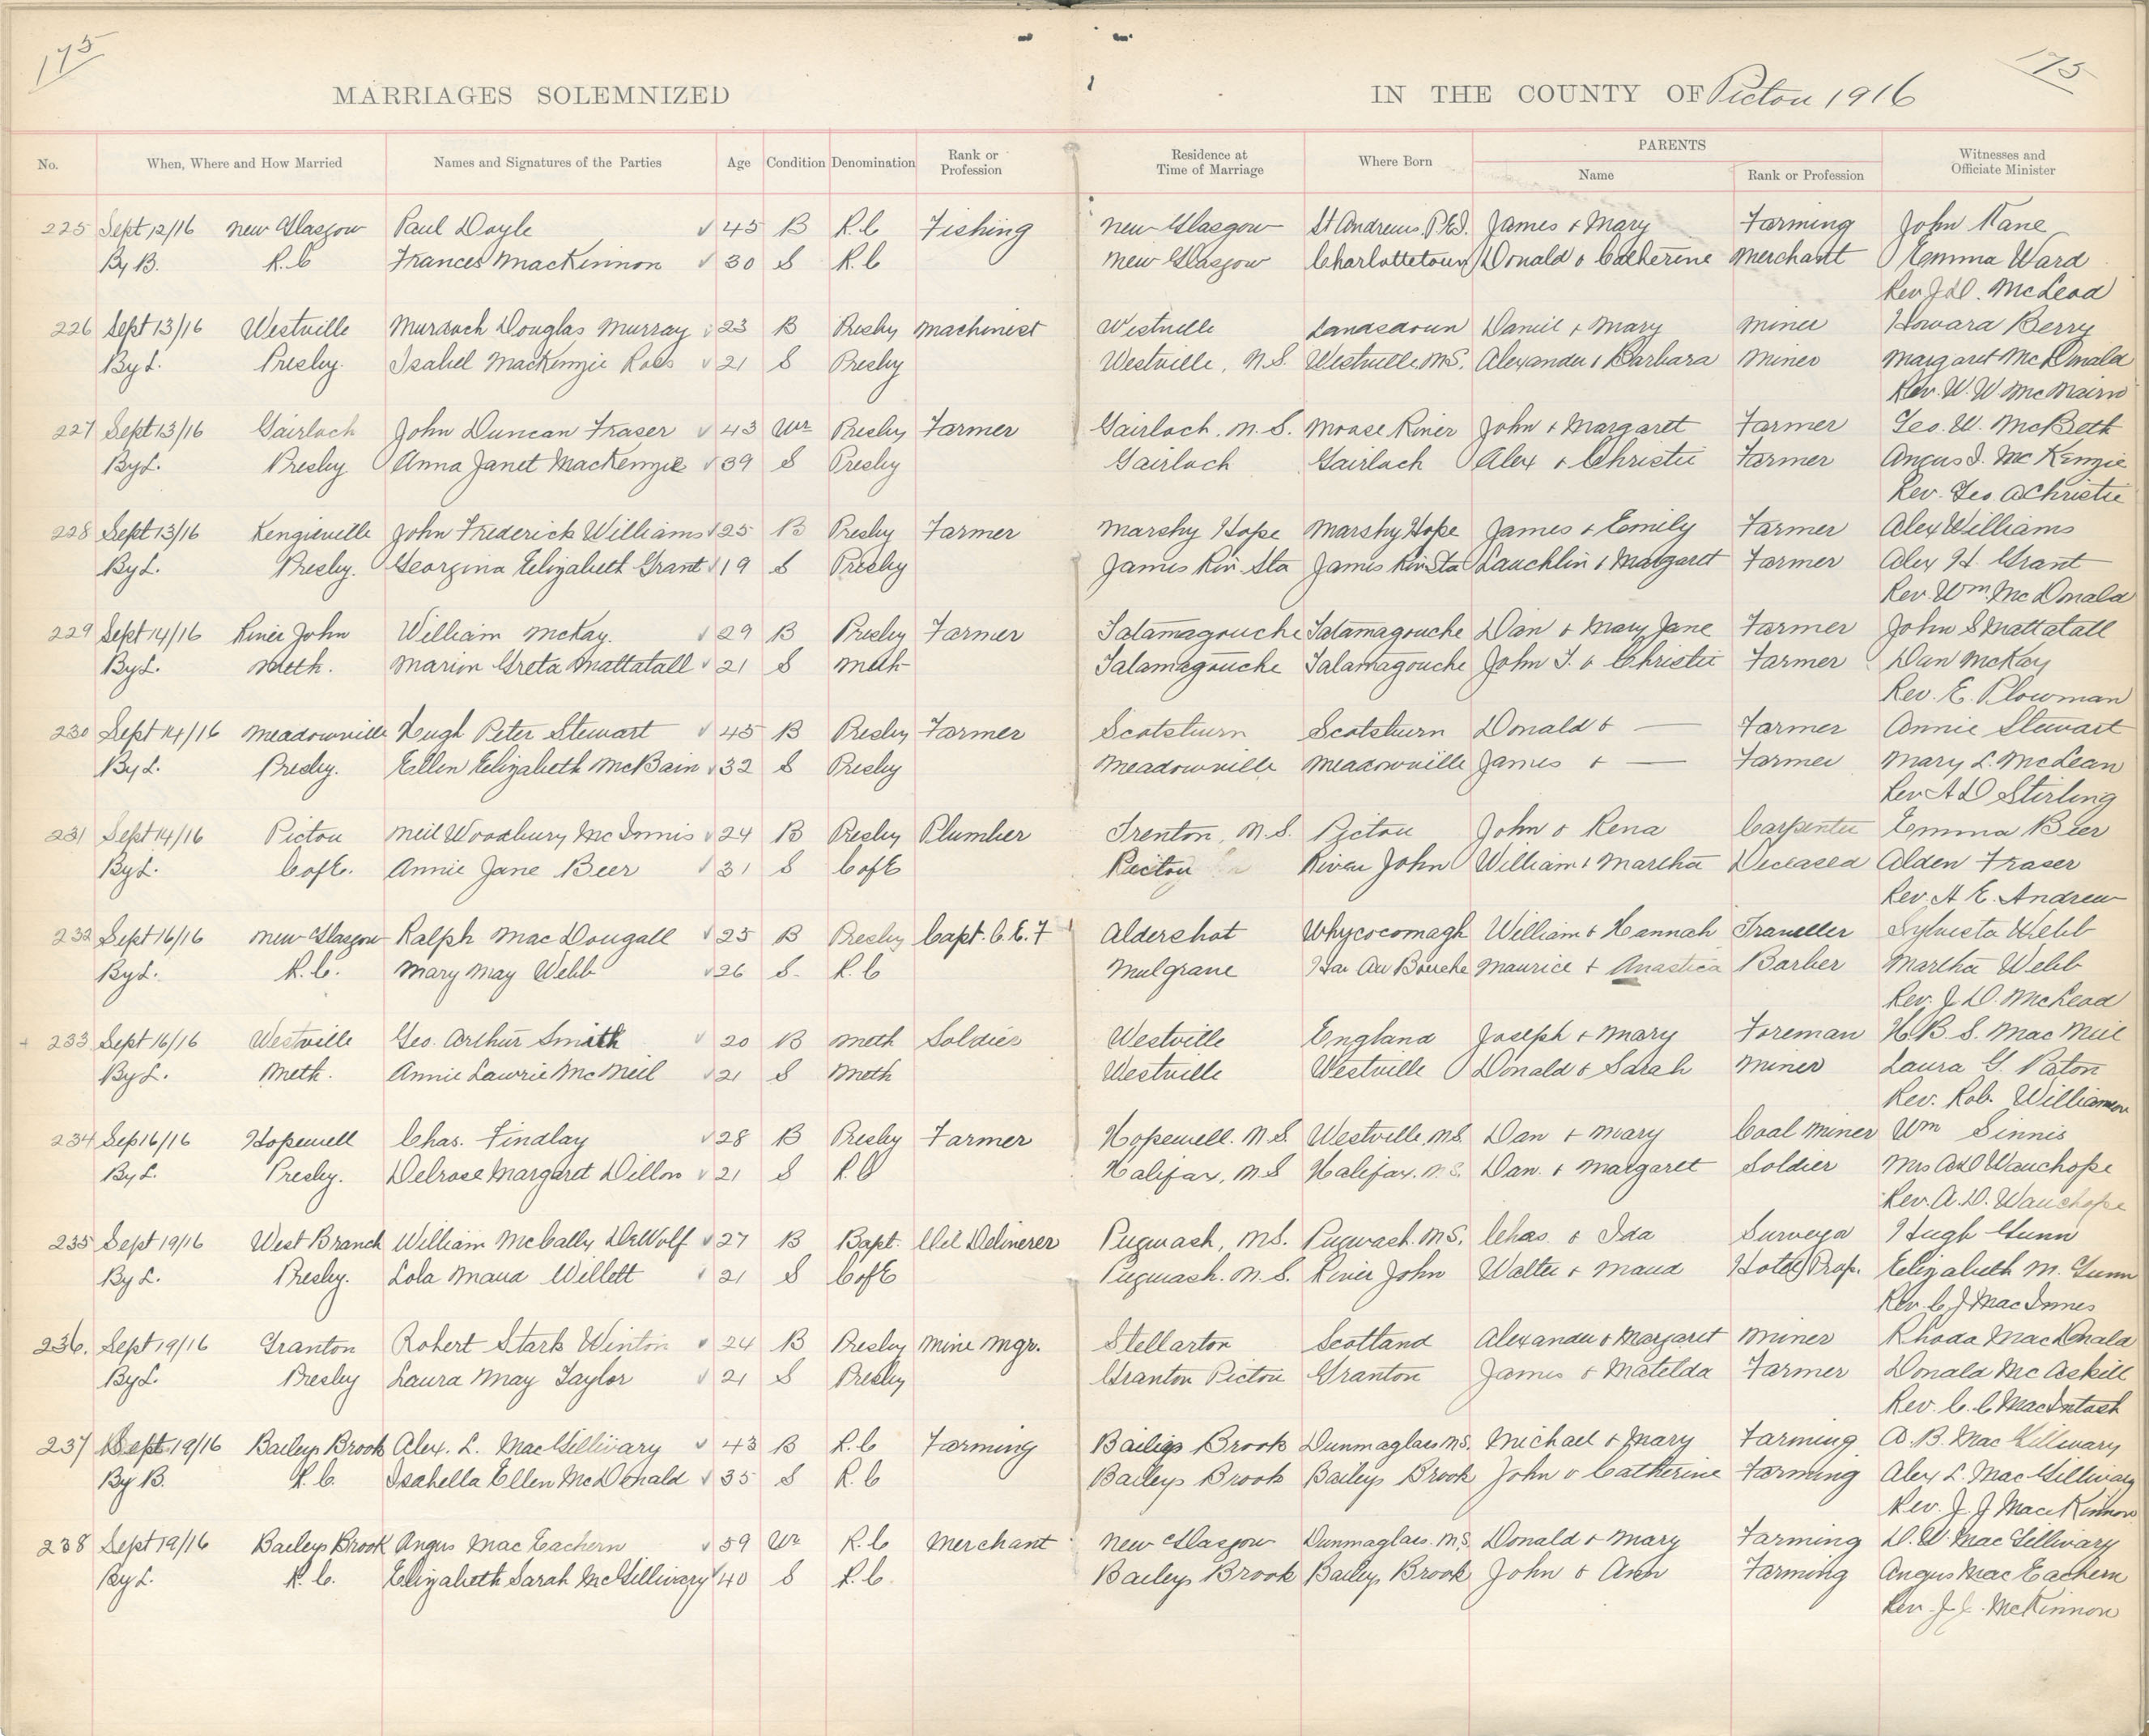 175
175
MARRIAGES SOLEMNIZED IN THE COUNTY OF Pictou 1916
No. When, Where and How Married Names and Signatures of the Parties Age Condition Denomination Rank or Profession Residence at Time of Marriage Where Born PARENTS Name Rank or Profession Witnesses and Officiate Minister
225 Sept 12/16 New Glasgow Paul Doyle 45 B R.C Fishing New Glasgow St Andrews P.E.I. James & Mary Farming John Kane
By B. R.C Frances MacKinnon 30 S R.C New Glasgow Charlottetown Donald & Catherine Merchant Emma Ward
Rev J.D. McLeod
226 Sept 13/16 Westville Murdoch Douglas Murray 23 B Presby Machinist Westville Landsdoun Daniel & Mary Miner Howard Berry
By L. Presby. Isabel MacKenzie Ross 21 S Presby Westville, N.S. Westville N.S. Alexander & Barbara Miner Margaret McDonald
Rev. W.W. McNairn
227 Sept 13/16 Gairloch John Duncan Fraser 43 Wr Presby Farmer Gairloch. N.S. Moose River John & Margaret Farmer Geo. W. McBeth
By L. Presby Anna Janet MacKenzie 39 S Presby Gairloch Gairloch Alex & Christie Farmer Angus J. McKenzie
Rev. Geo. A Christie
228 Sept 13/16 Kenzieville John Frederick Williams 25 B Presby Farmer Marshy Hope Marshy Hope James & Emily Farmer Alex Williams
By L. Presby. Georgina Elizabeth Grant 19 S Presby James Riv. Sta James Riv. Sta Lauchlin & Margaret Farmer Alex H. Grant
Rev. Wm McDonald
229 Sept 14/16 River John William McKay. 29 B Presby Farmer Tatamagouche Tatamagouche Dan & Mary Jane Farmer John S Mattatall
By L. Meth. Marion Greta Mattatall 21 S Meth Tatamagouche Tatamagouche John T. & Christie Farmer Dan McKay
Rev. E. Plowman
230 Sept 14/16 Meadowville Hugh Peter Stewart 45 B Presby Farmer Scotsburn Scotsburn Donald & — Farmer Annie Stewart
By L. Presby. Ellen Elizabeth McBain 32 S Presby Meadowville Meadowville James & — Farmer Mary L. McLean
Rev A D Stirling
231 Sept 14/16 Pictou Neil Woodbury McInnis 24 B Presby Plumber Trenton, N.S. Pictou John & Rena Carpenter Emma Beer
By L. C of E. Annie Jane Beer 31 S C of E Pictou River John William & Martha Deceased Alden Fraser
Rev. A E. Andrew
232 Sept 16/16 New Glasgow Ralph MacDougall 25 B Presby Capt. C.E.F Aldershot Whycocomagh William & Hannah Traveller Sylvesta Webb
By L. R.C. Mary May Webb 26 S. R.C Mulgrave Har Au Bouche Maurice & Anastica Barber Martha Webb
Rev. J.D. McLeod
233 Sept 16/16 Westville Geo. Arthur Smith 20 B Meth Soldier Westville England Joseph & Mary Foreman H.B.S. MacNeil
By L. Meth. Annie Lawrie McNeil 21 S Meth Westville Westville Donald & Sarah Miner Laura G. Paton
Rev. Rob. Williamson
234 Sep 16/16 Hopewell Chas. Findlay 28 B Presby Farmer Hopewell. N.S. Westville, N.S. Dan & Mary Coal Miner Wm Sinnis
By L. Presby. Delrose Margaret Dillon 21 S R.C Halifax, N.S Halifax. N.S. Dan. & Margaret Soldier Mrs A D Wauchope
Rev. A.D. Wauchope
235 Sept 19/16 West Branch William McCally DeWolf 27 B Bapt. Oil Deliverer Pugwash, N.S. Pugwash. N.S. Chas & Ida Surveyor Hugh Gunn
By L. Presby. Lola Maud Willett 21 S C of E Pugwash. N.S. River John Walter & Maud Hotel Prop. Elizabeth M. Gunn
Rev. C J MacInnes
236. Sept 19/16 Granton Robert Stark Winton 24 B Presby Mine Mgr. Stellarton Scotland Alexander & Margaret Miner Rhoda MacDonald
By L Presby Laura May Taylor 21 S Presby Granton Pictou Granton James & Matilda Farmer Donald McAskill
Rev. C.C MacIntosh
237 Sept 19/16 Baileys Brook Alex. L. MacGillivary 43 B R.C Farming Baileys Brook Dunmaglass N.S. Michael & Mary Farming A.B. MacGillivary
By B. R.C. Isabella Ellen McDonald 35 S R.C Baileys Brook Baileys Brook John & Catherine Farming Alex L. MacGillivary
Rev. J.J MacKinnon
238 Sept 19/16 Baileys Brook Angus MacEachern 59 Wr R.C Merchant New Glasgow Dunmaglass. N.S. Donald & Mary Farming D.W. MacGillivary
By L. R.C. Elizabeth Sarah McGillivary 40 S R.C. Baileys Brook Baileys Brook John & Ann Farming Angus MacEachern
Rev. J.J. McKinnon